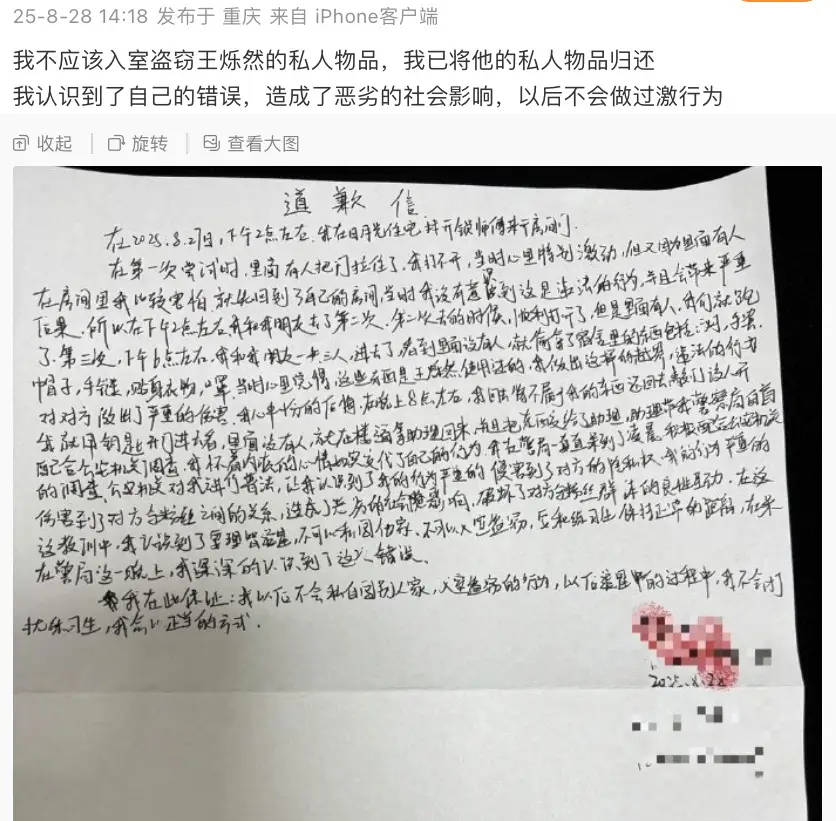 25-8-28 14:18 发布于 重庆 来自 iPhone客户端
我不应该入室盗窃王烁然的私人物品，我已将他的私人物品归还
我认识到了自己的错误，造成了恶劣的社会影响，以后不会做过激行为
收起 旋转 查看大图
道歉信
在2025.8.27日，下午2点左右，我在日月光住宅找开锁师傅来开房间门.
在第一次尝试时，里面有人把门拉住了，我打不开，当时心里特别激动，但又因为里面有人
在房间里我比较害怕，就先回到了自己的房间，当时我没有意识到这是违法的行为，并且会带来严重
后果，所以在下午2点左右我和我朋友去了第二次，第二次去的时候，顺利打开了，但是里面有人，我们就跑
了，第三次，下午6点左右，我和我朋友一共三人，进去了，看到里面没有人，就偷拿了宿舍里的东西包括
帽子，手链，贴身衣物，口罩，当时心里觉得，这些东西是王烁然使用过的，我做出这样的越界，违法的行为
对对方造成了严重的伤害，我心里十分的后悔，在晚上8点左右，我回去将不属于我的东西还回去
我就用钥匙开门进去看，里面没有人，就在楼道拿助理回来，并且把东西交给了助理，助理带我警察局自首
配合公安机关调查，我怀着内疚的心情如实交代了自己的行为，我在警局一直呆到了凌晨
的调查，公安机关对我进行普法，让我认识到了我的行为严重的侵害到了对方的隐私权，我的行为严重的
伤害到了对方与粉丝之间的关系，造成了恶劣的社会影响，破坏了对方与粉丝群体的良性互动，在这
这教训中，我认识到了要理智追星，不可以私闯他家，不可以入室盗窃，应和练习生保持正常的距离，在来
在警局这一晚上，我深深的认识到了这次错误。
我在此保证：我以后不会私自闯别人家，入室盗窃的行为，以后追星的过程中，我不会打
扰练习生，我会以正当的方式.
2025.8.28